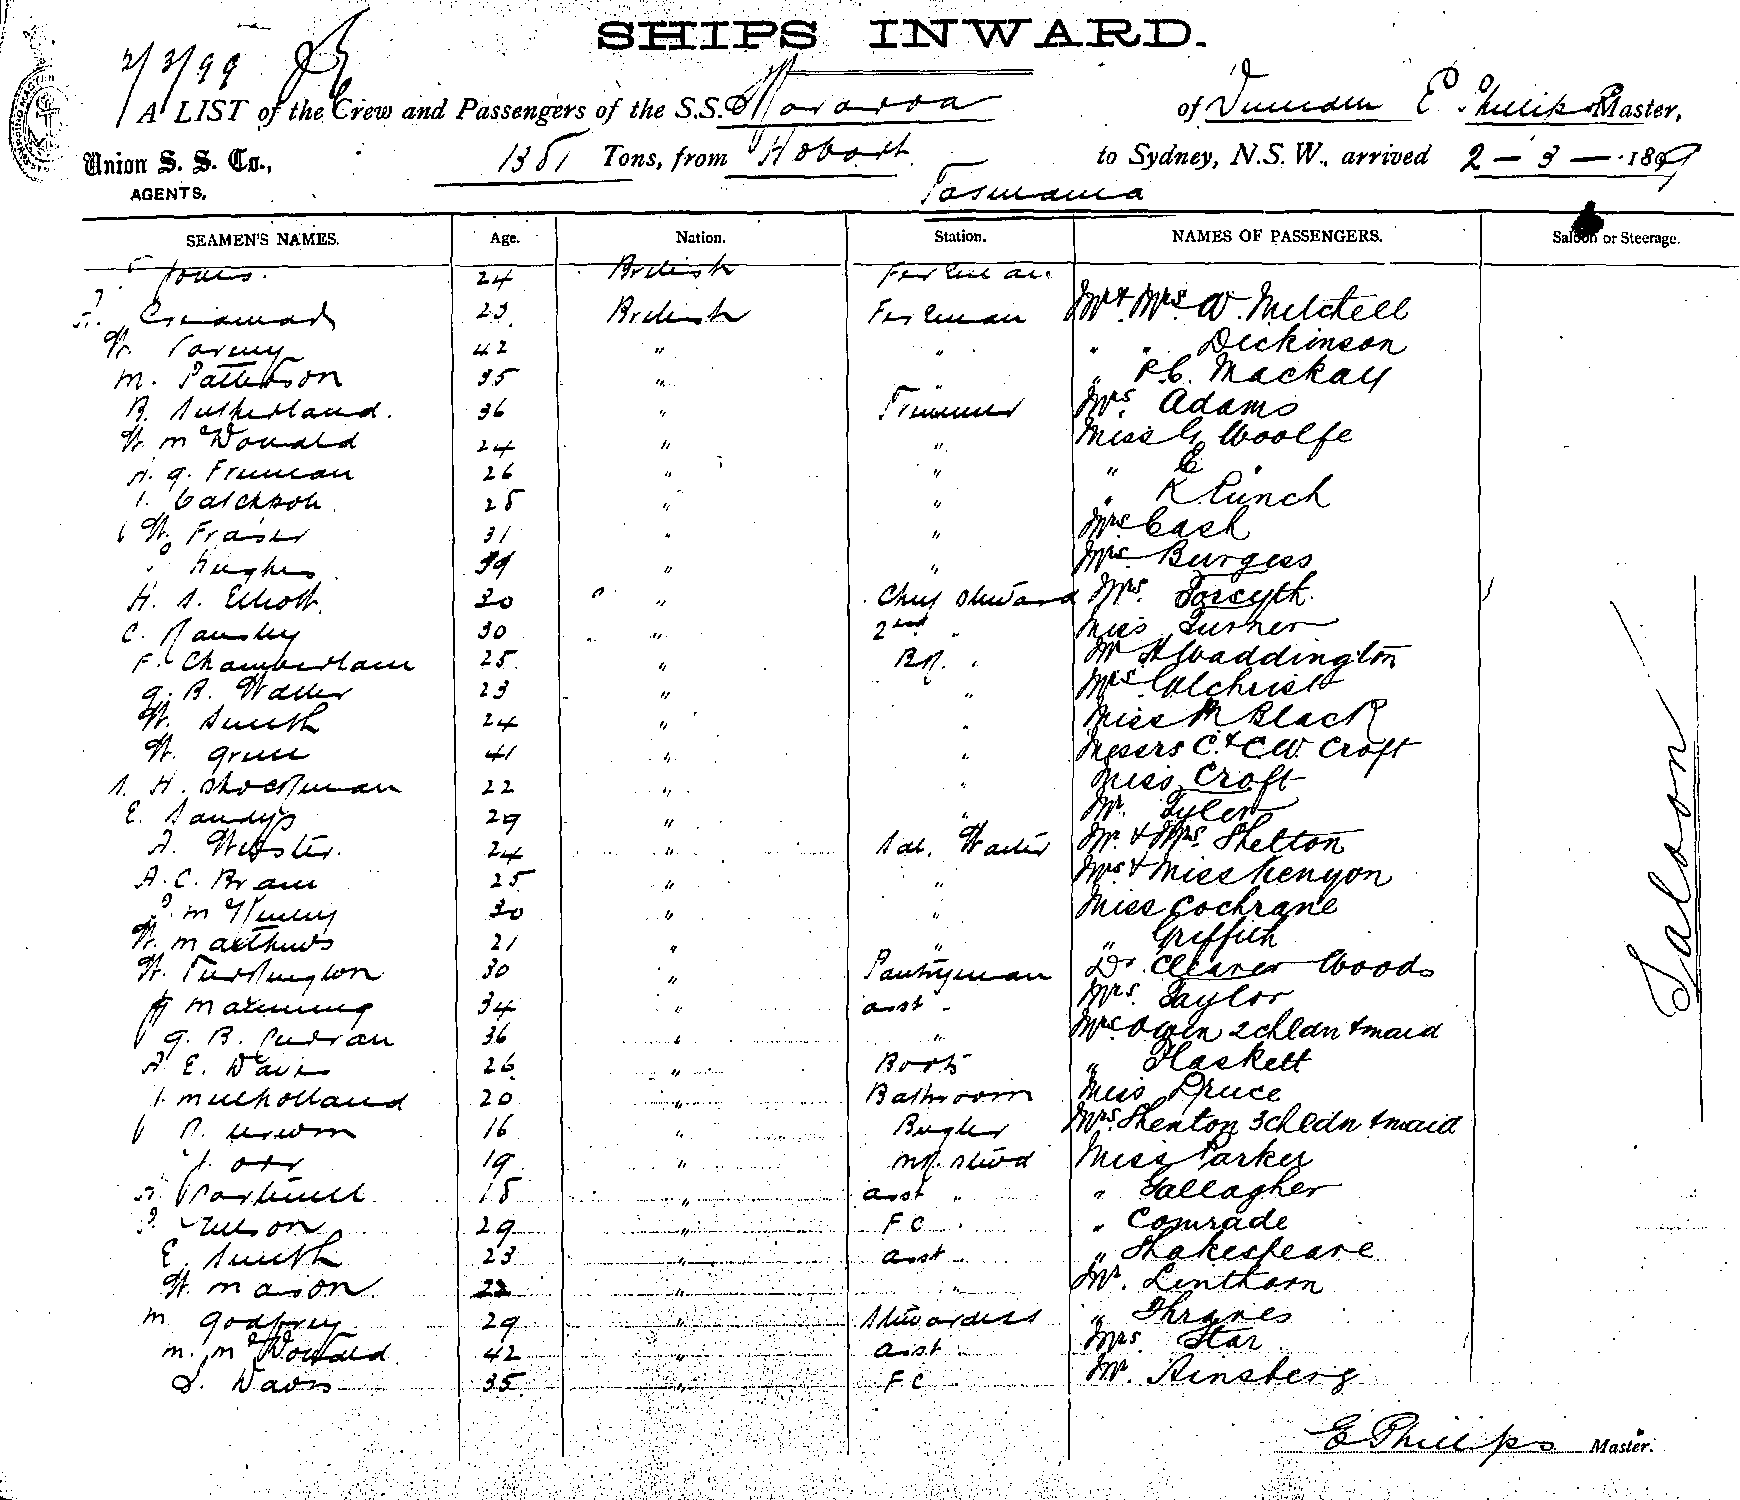 SHIPS INWARD.
2/3/99
A LIST of the Crew and Passengers of the S.S. Mararoa of Dunedin E Phillips Master,
Union S. S. Co., 1381 Tons, from Hobart to Sydney, N.S.W., arrived 2 - 3 - 1899
AGENTS. Tasmania
SEAMEN'S NAMES. Age. Nation. Station. NAMES OF PASSENGERS. Saloon or Steerage.
Jones. 24 British Fireman
23 British Fireman Mr & Mrs W. Mitchell
W. 42 " " " " Dickinson
M. Patterson 35 " " " P.C. Mackay
R. Sutherland. 36 " Trimmer Mrs. Adams
W. McDonald 24 " " Miss G Woolfe
A. G. Freeman 26 " " " E "
25 " " " K Punch
W. Fraser 31 " " Mrs Cash
Hughes 39 " " Mrs Burgess
H. S. Elliott. 30 " Chief Steward Mrs. Forsyth.
C. Ramsley 30 " 2nd " Miss Turner
F. Chamberlain 25 " BR. " Mr H Waddington
G. R. Waller 23 " " Mrs Gilchrist
W. Smith 24 " " Miss M Black
W. Green 41 " " Messrs C. & C.W. Croft
S. H. Shockman 22 " " Miss Croft
E. Sandys 29 " " Mr. Tyler
A. Webster. 24 " Sal. Waiter Mr. & Mrs. Shelton
A. C. Brain 25 " " Mrs & Miss Kenyon
30 " " Miss Cochrane
W. Matthews 21 " " " Griffith
W. Turkington 30 " Pantryman Dr. Cleaver Woods
Manning 34 " asst " Mrs. Taylor
G. B. 36 " " Mrs Owen 2 chldn & maid
A. E. Davis 26 " Boots " Haskett
J. Mulholland 20 " Bathroom Miss Druce
R. Urwin 16 " Bugler Mrs. Shenton 3 chldn & maid
J. Orr 19 " Stwd Miss Parker
15 " asst " " Gallagher
Nelson 29 " FC " " Comrade
E. Smith 23 " asst " " Shakespeare
W. Mason 22 " " Mr. Linthorn
M Godfrey 29 " Stewardess " Thranes
M. McDonald 42 " asst " Mrs. Star
D. Davis 35 " FC " Mr. Ainsberg
Saloon
E Phillips Master.